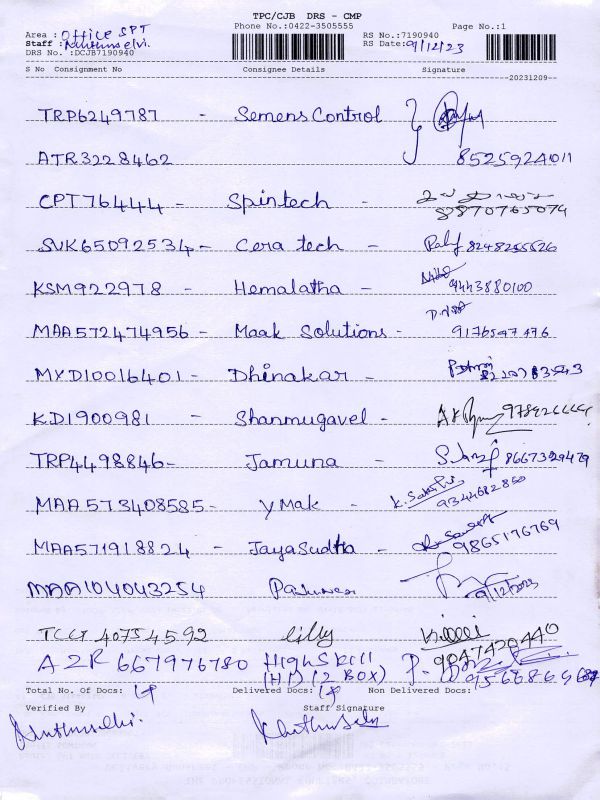 TPC/CJB DRS - CMP
Phone No.:0422-3505555 Page No.:1
Area : Office SPT RS No.:7190940
Staff : Muthuselvi. RS Date: 9/12/23
DRS No. :DCJB7190940
S No Consignment No Consignee Details Signature
20231209
TRP6249787 - Semens Control
ATR3228462 8525924011
CPT76444 - Spintech - 8870765074
SVK65092534 - Cera tech - 8248255526
KSM922978 - Hemalatha - 9443880100
MAA572474956 - Maak Solutions -
MYD10016401 - Dhinakar -
KDI900981 - Shanmugavel -
TRP4498846 - Jamuna - 8667329479
MAA573408585 - YMak - 9344682850
MAA571918824 - JayaSudha - 9865176769
MAA104043254 9/12/2023
TCG 407545 92 Lilly
9047420440
AZR 667976780 HighSkill
(HM) (2 BOX)
Total No. Of Docs: 14 Delivered Docs: 14 Non Delivered Docs:
Verified By Staff Signature
Muthuselvi. Muthuselvi